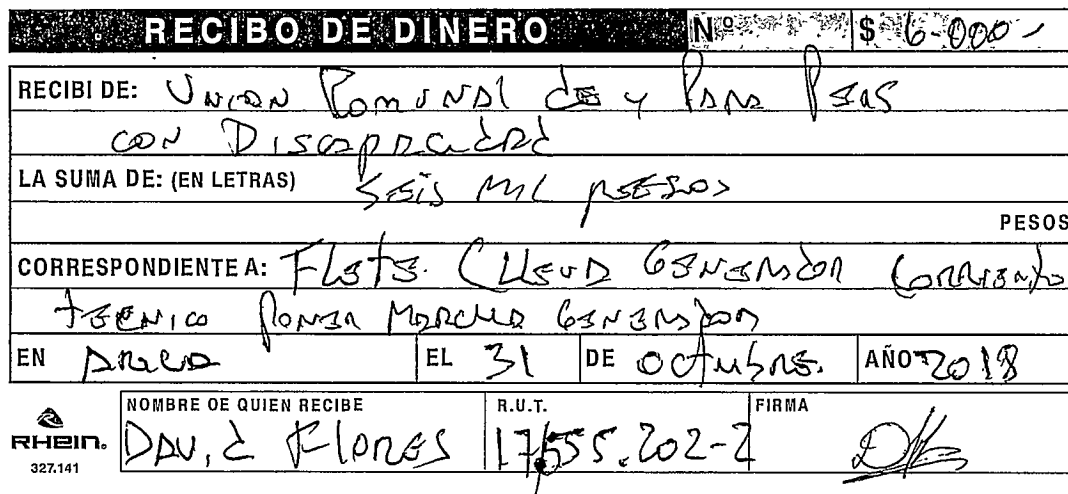 RECIBO DE DINERO Nº $ 6-000-
RECIBI DE: Union Comunal de y Para Psas
con Discapacidad
LA SUMA DE: (EN LETRAS) Seis Mil pesos
PESOS
CORRESPONDIENTE A: Flete. Generador Corriente
tecnico Poner Marcha Generador
EN Arica EL 31 DE octubre. AÑO 2018
NOMBRE DE QUIEN RECIBE R.U.T. FIRMA
RHEIN. David Flores 17.555.202-2
327.141